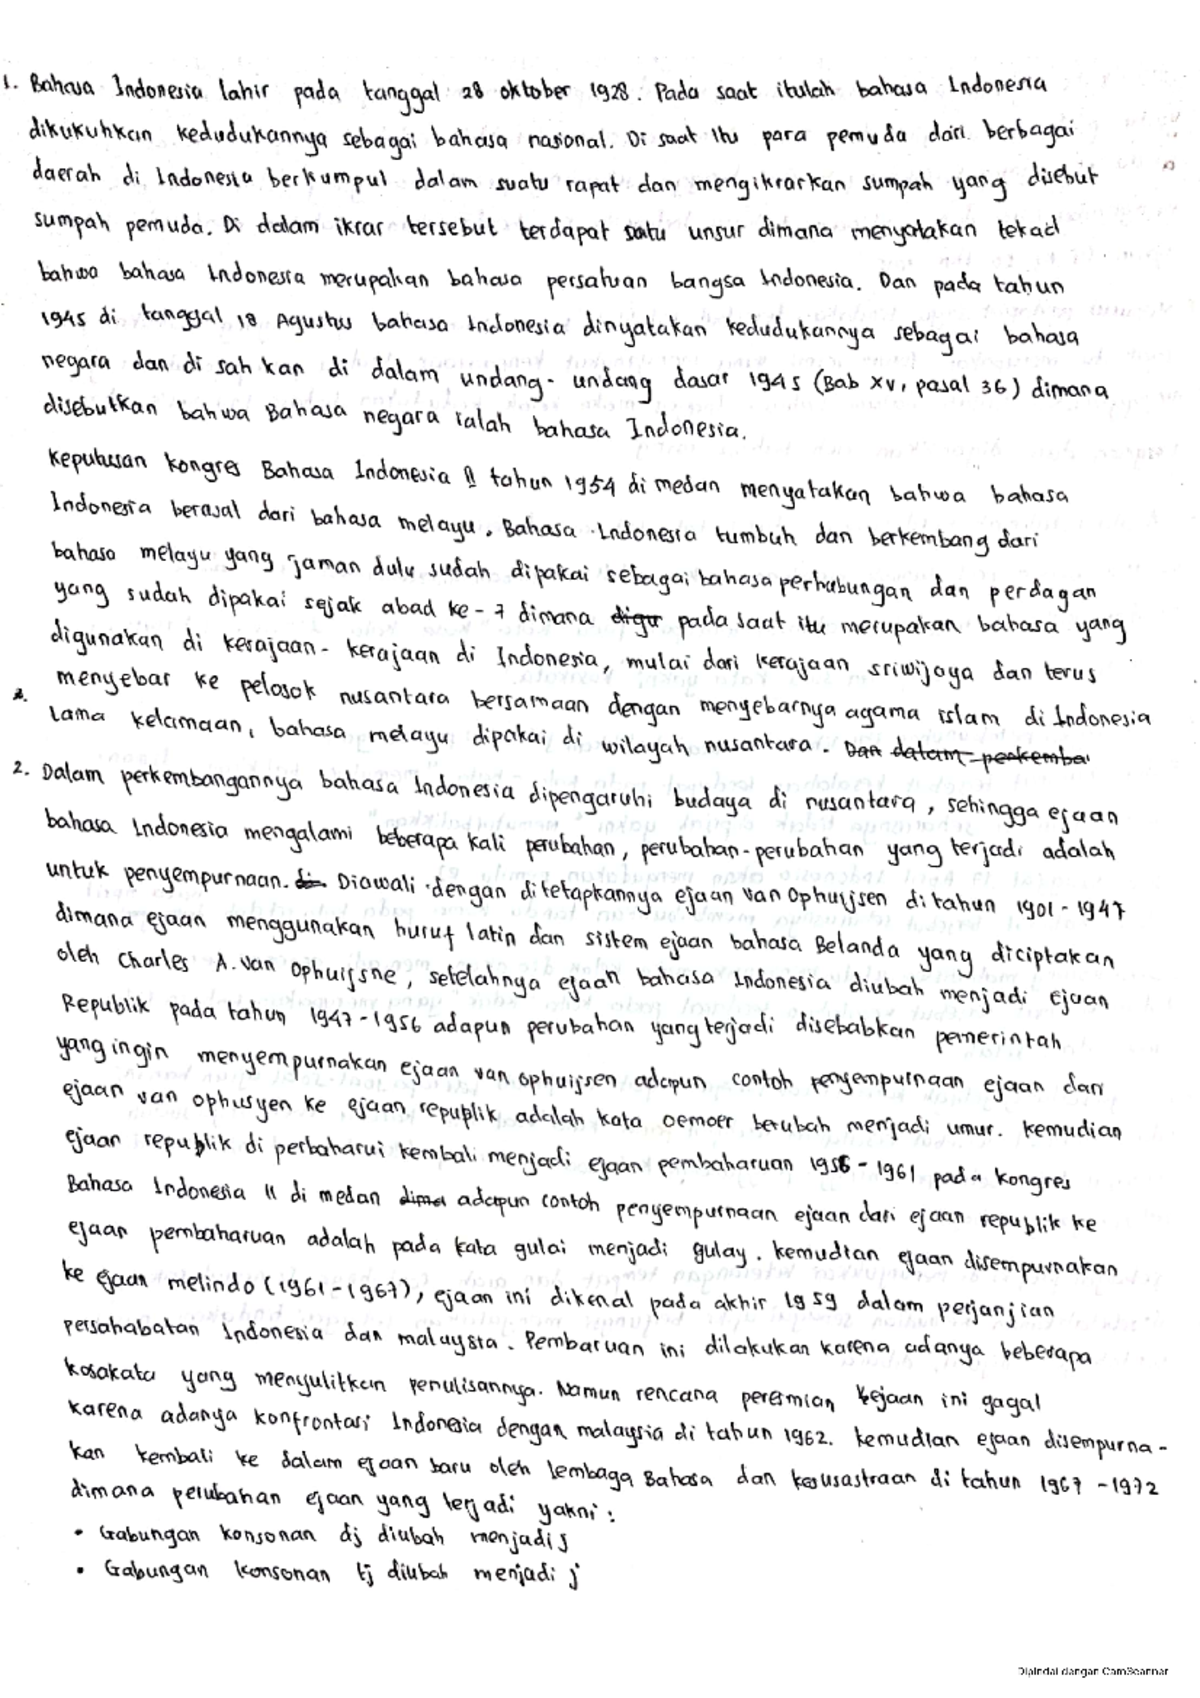 1. Bahasa Indonesia lahir pada tanggal 28 oktober 1928. Pada saat itulah bahasa Indonesia
dikukuhkan kedudukannya sebagai bahasa nasional. Di saat itu para pemuda dari berbagai
daerah di Indonesia berkumpul dalam suatu rapat dan mengikrarkan sumpah yang disebut
sumpah pemuda. Di dalam ikrar tersebut terdapat satu unsur dimana menyatakan tekad
bahwa bahasa Indonesia merupakan bahasa persatuan bangsa Indonesia. Dan pada tahun
1945 di tanggal 18 Agustus bahasa Indonesia dinyatakan kedudukannya sebagai bahasa
negara dan di sah kan di dalam undang-undang dasar 1945 (Bab XV, pasal 36) dimana
disebutkan bahwa Bahasa negara ialah bahasa Indonesia.
Keputusan kongres Bahasa Indonesia II tahun 1954 di medan menyatakan bahwa bahasa
Indonesia berasal dari bahasa melayu. Bahasa Indonesia tumbuh dan berkembang dari
bahasa melayu yang jaman dulu sudah dipakai sebagai bahasa perhubungan dan perdagan
yang sudah dipakai sejak abad ke-7 dimana digu pada saat itu merupakan bahasa yang
digunakan di kerajaan-kerajaan di Indonesia, mulai dari kerajaan sriwijaya dan terus
menyebar ke pelosok nusantara bersamaan dengan menyebarnya agama islam di Indonesia
2. Lama kelamaan, bahasa melayu dipakai di wilayah nusantara. Dan dalam perkemba
2. Dalam perkembangannya bahasa Indonesia dipengaruhi budaya di nusantara, sehingga ejaan
bahasa Indonesia mengalami beberapa kali perubahan, perubahan-perubahan yang terjadi adalah
untuk penyempurnaan. Di Diawali dengan ditetapkannya ejaan Van Ophuijsen di tahun 1901-1947
dimana ejaan menggunakan huruf latin dan sistem ejaan bahasa Belanda yang diciptakan
oleh Charles A. Van Ophuijsne, setelahnya ejaan bahasa Indonesia diubah menjadi Ejaan
Republik pada tahun 1947-1956 adapun perubahan yang terjadi disebabkan pemerintah
yang ingin menyempurnakan ejaan van ophuijsen adapun contoh penyempurnaan ejaan dari
ejaan van ophusyen ke ejaan republik adalah kata oemoer berubah menjadi umur. Kemudian
ejaan republik di perbaharui kembali menjadi ejaan pembaharuan 1956-1961 pada kongres
Bahasa Indonesia II di medan dima adapun contoh penyempurnaan ejaan dari ejaan republik ke
ejaan pembaharuan adalah pada kata gulai menjadi gulay. Kemudian ejaan disempurnakan
ke ejaan melindo (1961-1967), ejaan ini dikenal pada akhir 1959 dalam perjanjian
persahabatan Indonesia dan malaysia. Pembaruan ini dilakukan karena adanya beberapa
kosakata yang menyulitkan penulisannya. Namun rencana peresmian kejaan ini gagal
karena adanya konfrontasi Indonesia dengan malaysia di tahun 1962. Kemudian ejaan disempurna-
kan kembali ke dalam ejaan baru oleh lembaga Bahasa dan kesusastraan di tahun 1967-1972
dimana perubahan ejaan yang terjadi yakni:
• Gabungan konsonan dj diubah menjadi j
• Gabungan konsonan tj diubah menjadi j
Dipindai dengan CamScanner